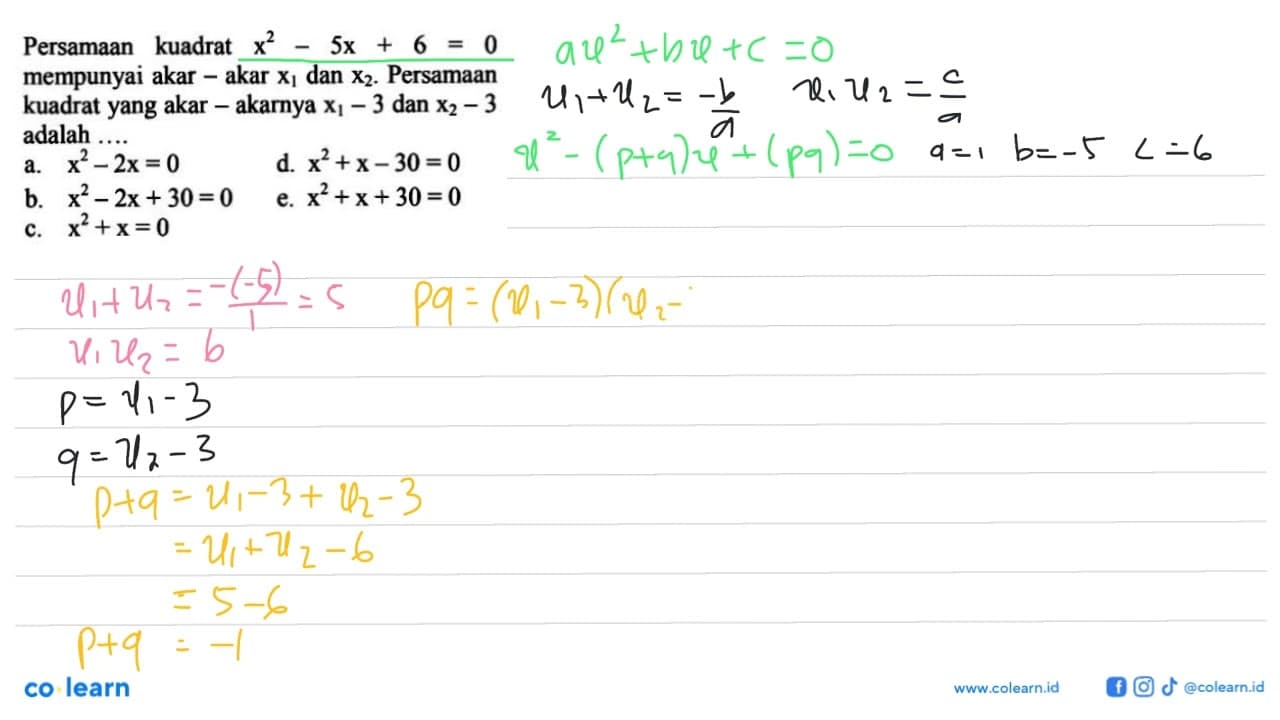 Persamaan kuadrat x² - 5x + 6 = 0
mempunyai akar – akar x₁ dan x₂. Persamaan
kuadrat yang akar – akarnya x₁ – 3 dan x₂ – 3
adalah ....
a. x² – 2x = 0 d. x² + x – 30 = 0
b. x² – 2x + 30 = 0 e. x² + x + 30 = 0
c. x² + x = 0
ax² + bx + c = 0
x₁ + x₂ = -b/a x₁ x₂ = c/a
x² - (p+q)x + (pq) = 0 a=1 b=-5 c=6
x₁ + x₂ = -(-5)/1 = 5
x₁ x₂ = 6
p = x₁ - 3
q = x₂ - 3
p+q = x₁ - 3 + x₂ - 3
= x₁ + x₂ - 6
= 5 - 6
p+q = -1
pq = (x₁ - 3)(x₂ -
co learn
www.colearn.id @colearn.id